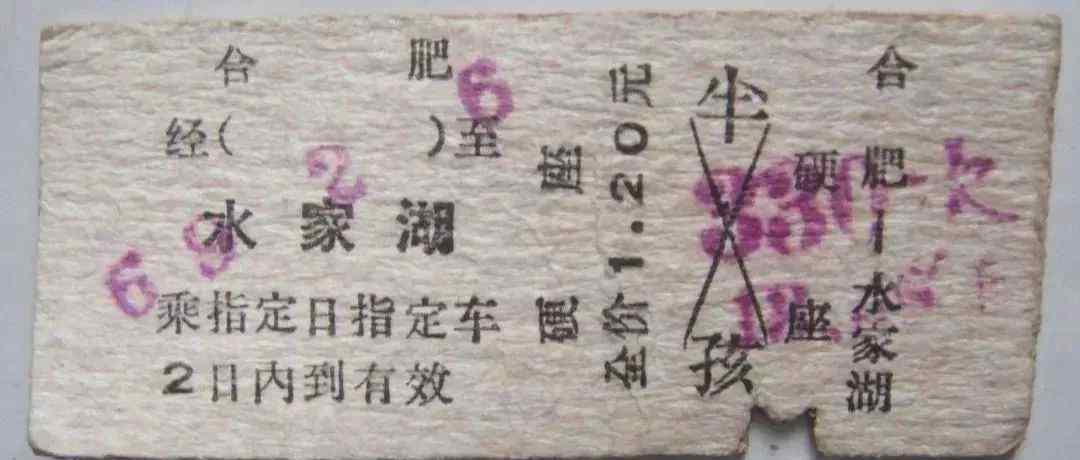 合 肥
经( )至
水家湖
乘指定日指定车
2日内到有效
硬座
全价1.20元
半
孩
硬座
合肥—水家湖
6
2
6 9
次